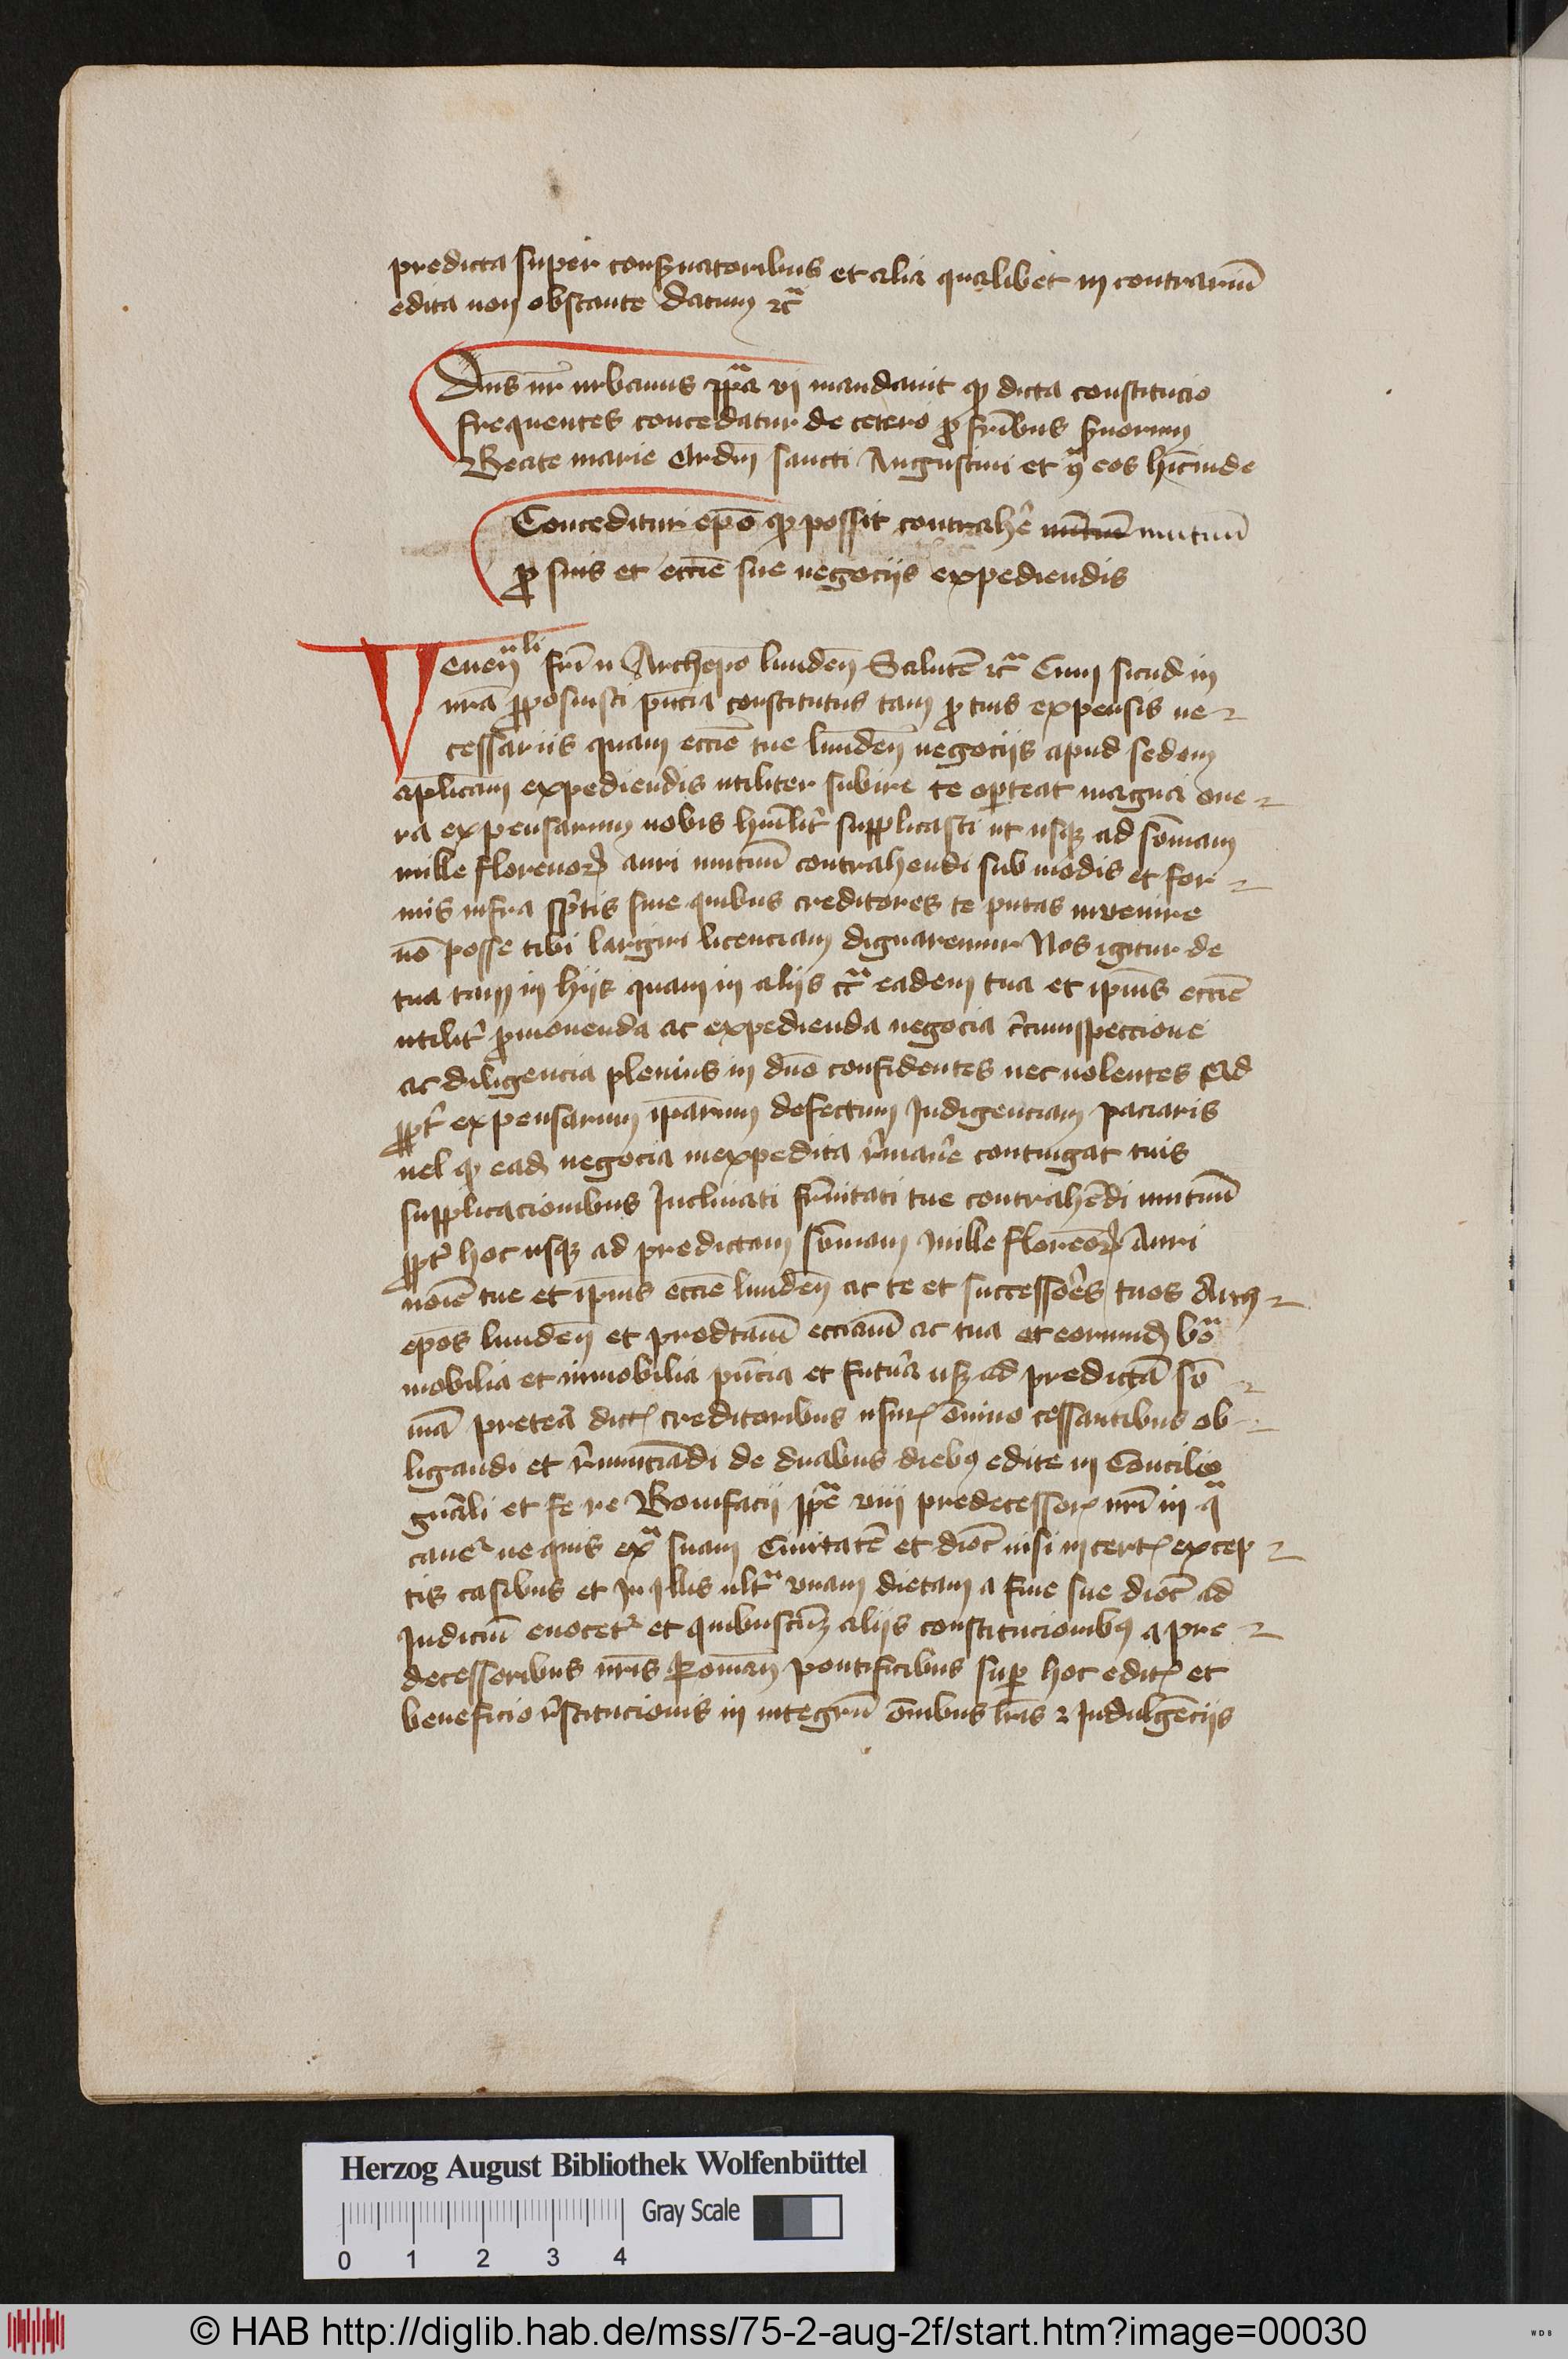 predicta super conẜuatoribus et alia qualibet in contrariū
edita non obstante Datum ⁊cͣ
Dn̄s nr̄ urbanus pp̄a vj mandauit ꝙ dicta constitucio
frequentes concedatur de cetero ꝓ fr̄ibus ẜuorum
Beate marie Ordīn sancti Augustini et ꝯͣ eos hīcinde
Conceditur ep̄o ꝙ possit contrahe᷑ mutuū
ꝓ suis et eccl̄ie sue negocijs expediendis
Uen̄li frī n Archep̄o lunden̄ Salutē ⁊cͣ Cum sicud in
nrā ꝓposuisti pn̄cia constitutus tam ꝓ tuis expensis ne
cessariis quam eccīe tue lunden̄ negocijs apud sedem
ap̄licam expediendis utiliter subire te oꝑteat magna one
ra expensarum nobis humilit᷑ supplicasti ut usqꝫ ad sōmam
mille florenoꝝ auri mutuū contrahendi sub modis et for
mis infra sc᷑ptis sine quibus creditores te putas invenire
nō posse tibi largiri licenciam dignaremur Nos igitur de
tua tam in hijs quam in alijs cͨͣ eadem tua et ip̄ius eccīe
utilit᷑ ꝓmouenda ac expedienda negocia c᷑cumspeccione
ac diligencia plenius in dn̄o confidentes nec uolentes qd
ꝓpt᷑ expensarum ip̄arum defectum Indigenciam paciaris
uel ꝙ eadꝫ negocia inexpedita r᷑mane᷑ contingat tuis
supplicacionibus Inclinati fr̄nitati tue contrahēdi mutuū
ꝓpt᷑ hoc usqꝫ ad predictam sōmam Mille florēoꝝ Auri
noīe tue et ip̄ius eccīe lunden̄ ac te et successores tuos Arch
epōs lunden̄ et predtam̄ eccīam ac tua et eorundꝫ boͣ
mobilia et inmobilia pn̄cia et futura usqꝫ ad predictā sō
mā pretea᷑ dict᷑ creditoribus usur᷑ ōmino cessantibus ob
ligandi et r᷑nunciādi de duabus dieb⁹ edite in Concilio
gnāli et fe re Bonifacij pp̄e viii predecessor᷑ nrī in qͣ
cauet᷑ ne quis exͣ suam Ciuitatē et dioc̄ nisi in cert᷑ excep
tis casibus et in illis ultͣ vnam dietam a fine sue dioc̄ ad
Judiciū euocet᷑ et quibuscūqꝫ alijs constitucionib⁹ a pre
decessoribus nr̄is Roman̄ pontificibus suꝑ hoc edit᷑ et
beneficio r᷑stitucionis in integrū ōnibus lr̄is ⁊ Indulgēcijs
Herzog August Bibliothek Wolfenbüttel
Gray Scale
0 1 2 3 4
© HAB http://diglib.hab.de/mss/75-2-aug-2f/start.htm?image=00030